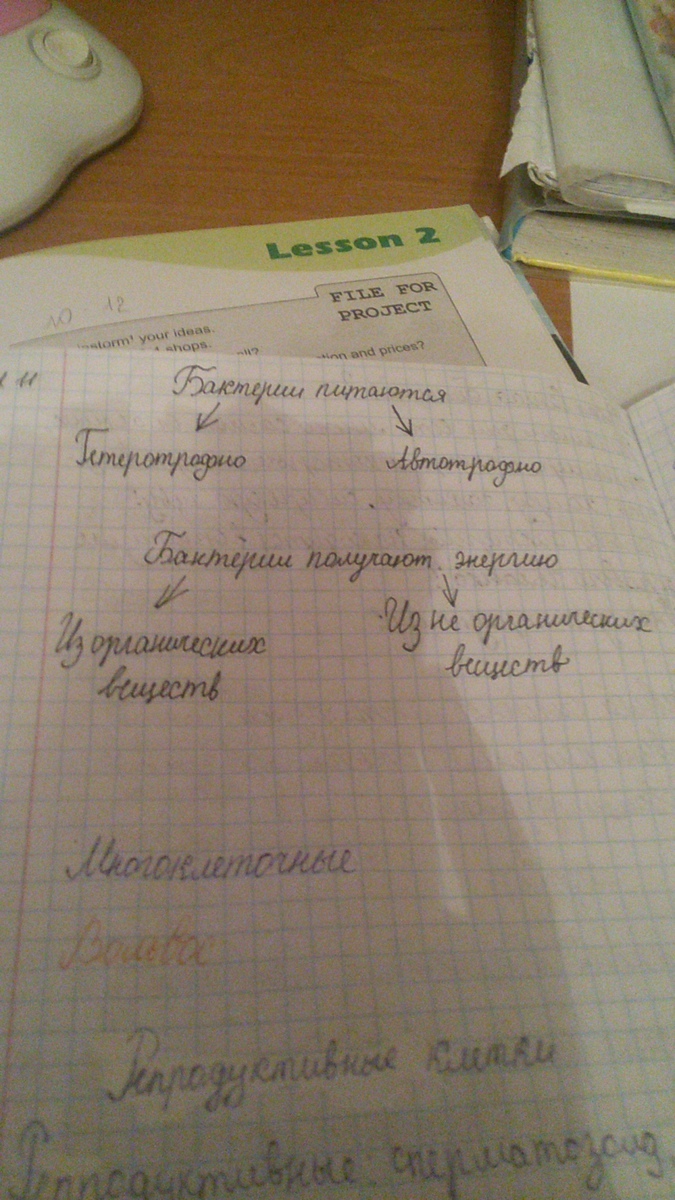 Lesson 2
10 12
FILE FOR
PROJECT
your ideas.
shops.
and prices?
11
Бактерии питаются
Гетеротрофно Автотрофно
Бактерии получают энергию
Из органических Из не органических
веществ веществ
Многоклеточные
Вольвос
Репродуктивные клетки
Репподуктивные сперматозоид